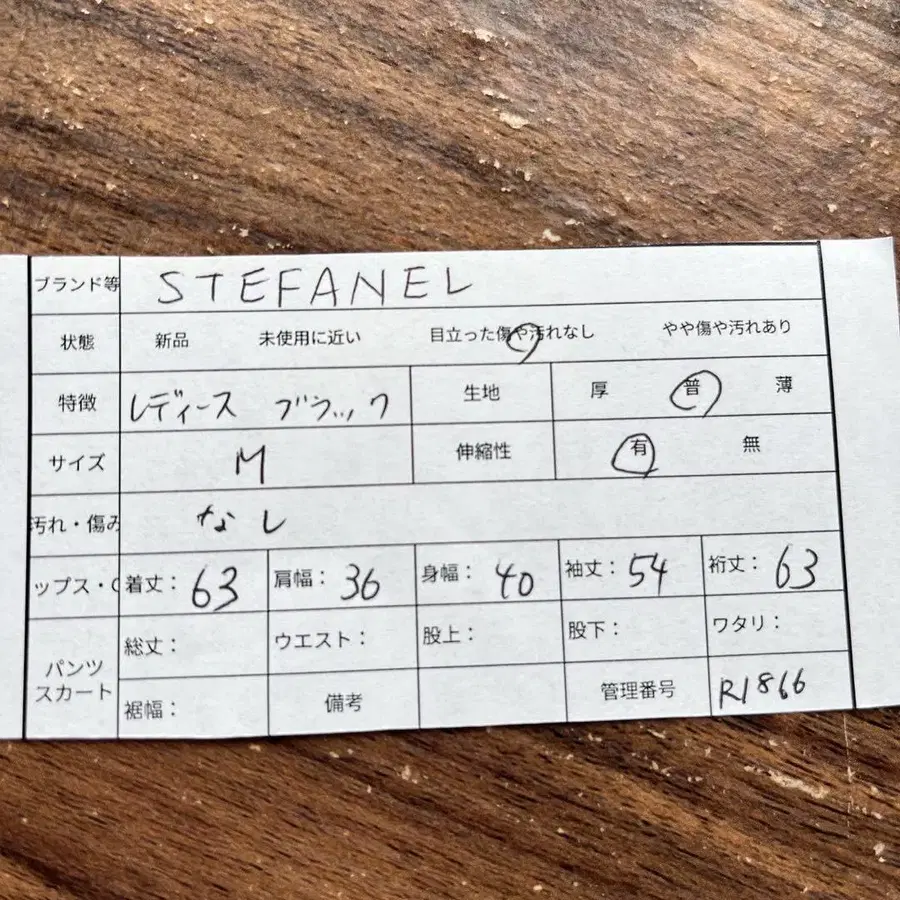 ブランド等 STEFANEL
状態 新品 未使用に近い 目立った傷や汚れなし やや傷や汚れあり
特徴 レディース ブラック 生地 厚 普 薄
サイズ M 伸縮性 有 無
汚れ・傷み なし
ップス・ 着丈: 63 肩幅: 36 身幅: 40 袖丈: 54 裄丈: 63
パンツ
スカート
総丈: ウエスト: 股上: 股下: ワタリ:
裾幅: 備考 管理番号 R1866